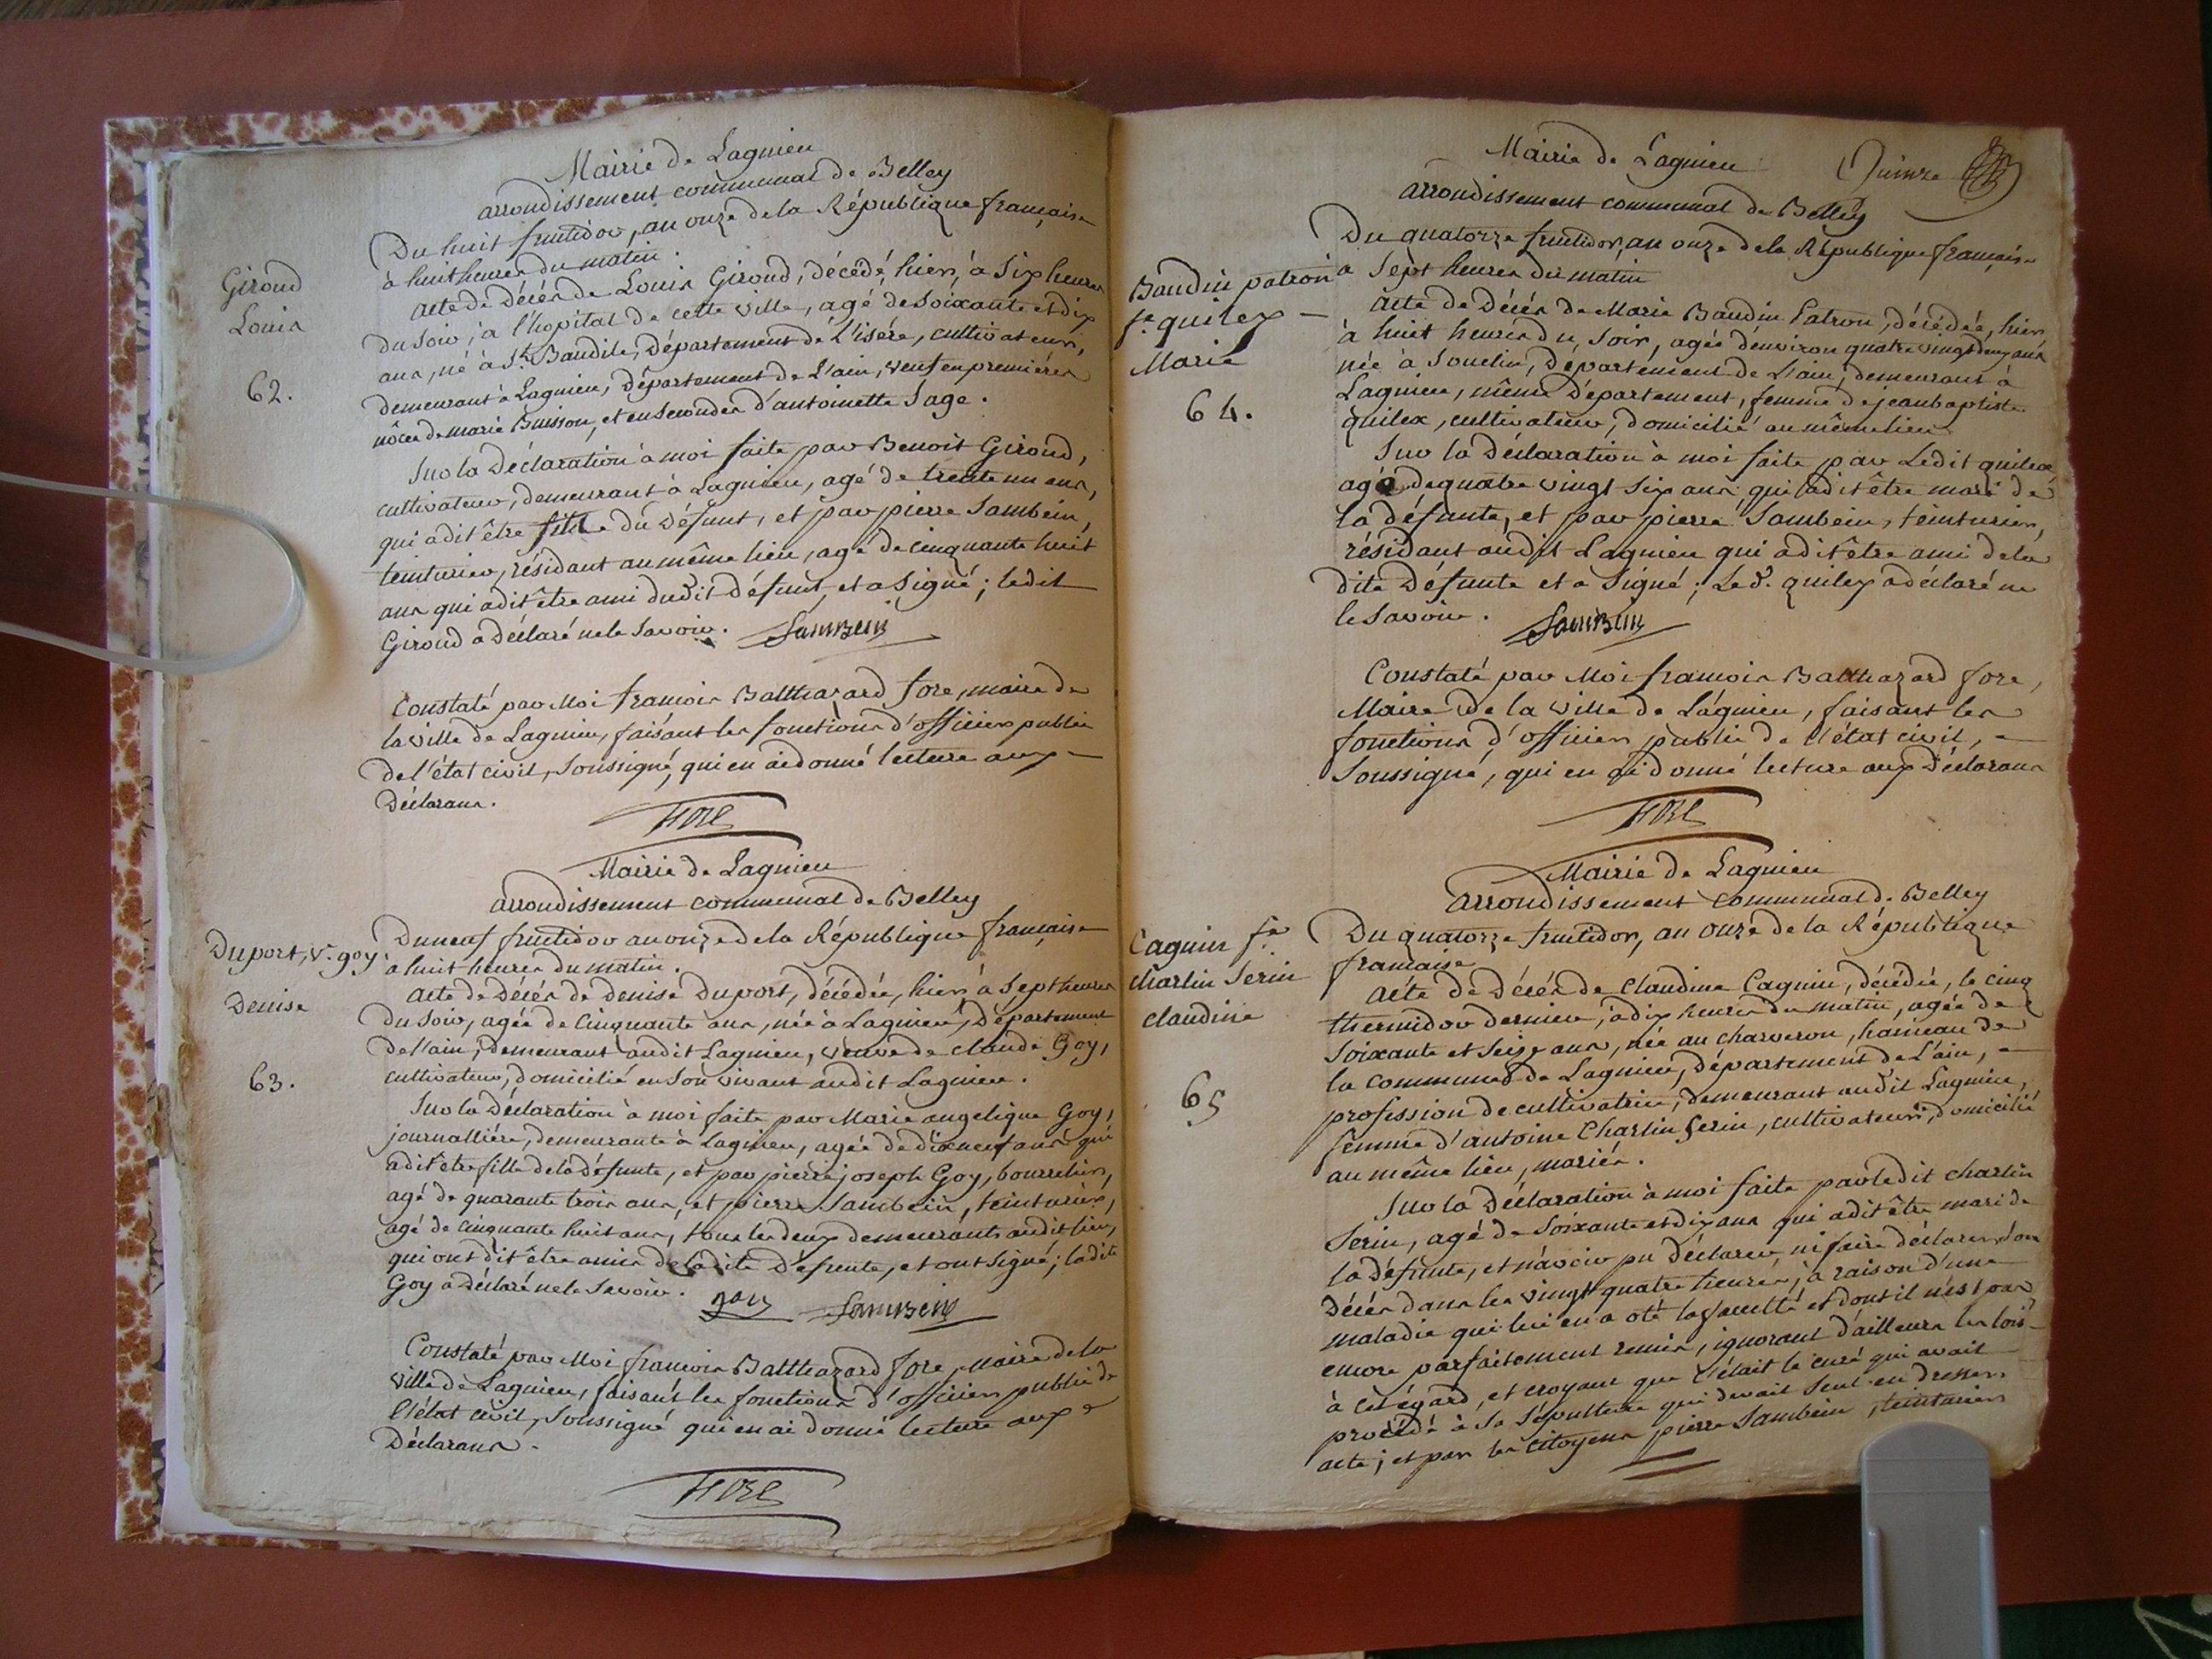 Mairie de Lagnieu
arrondissement communal de Belley
Du huit fructidor, an onze de la République française
à huit heures du matin.
Giroud
Louis
62.
acte de décès de Louis Giroud, décédé, hier, à six heures
du soir, à l'hopital de cette ville, agé de soixante et dix
ans, né à St. Baudile, Département de L'isére, cultivateur,
demeurant à Lagnieu, département de L'ain, veuf en premières
nôces de marie Buisson, et en secondes d'antoinette Sage.
Sur la Déclaration à moi faite par Benoit Giroud,
cultivateur, demeurant à Lagnieu, agé de trente un ans,
qui a dit être fils du défunt, et par pierre Sambein,
teinturier, résidant au même lieu, agé de cinquante huit
ans qui a dit être ami dudit défunt, et a signé; ledit
Giroud a déclaré ne le savoir. Sambein
Constaté par Moi françois Balthazard fore, maire de
la ville de Lagnieu, faisant les fonctions d'officier public
de l'état civil, soussigné, qui en ai donné lecture aux
Déclarans.
fore
Mairie de Lagnieu
arrondissement communal de Belley
Du neuf fructidor an onze de la République française
à huit heures du matin.
Duport, ve. goy
Denise
63.
acte de décès de Denise Duport, décédée, hier, à sept heures
du soir, agée de cinquante ans, née à Lagnieu, Département
de l'ain, demeurant audit Lagnieu, veuve de claude Goy,
cultivateur, domicilié en son vivant audit Lagnieu.
Sur la Déclaration à moi faite par Marie angelique Goy,
journallière, demeurante à Lagnieu, agée de dixneuf ans qui
a dit être fille de la défunte, et par pierre joseph Goy, bourrelier,
agé de quarante trois ans, et pierre Sambein, teinturier,
agé de cinquante huit ans, tous les deux demeurants audit lieu,
qui ont dit être amis de ladite défunte, et ont signé; ladite
Goy a déclaré ne le savoir. goy Sambein
Constaté par Moi françois Balthazard fore, Maire de la
ville de Lagnieu, faisant les fonctions d'officier public de
l'état civil, soussigné qui en ai donné lecture aux
Déclarans.
fore
Mairie de Lagnieu Quinze
arrondissement communal de Belley
Du quatorze fructidor, an onze de la République française
à sept heures du matin
Baudin patron
fe. quilex
Marie
64.
acte de décès de Marie Baudin Patron, décédée, hier
à huit heures du soir, agée d'environ quatre vingt deux ans
née à Souclin, département de L'ain, demeurant à
Lagnieu, même département, femme de jean baptiste
quilex, cultivateur, domicilié au même lieu
Sur la déclaration à moi faite par Ledit quilex
agé de quatre vingt six ans qui a dit être mari de
la défunte, et par pierre Sambein, teinturier,
résidant audit Lagnieu qui a dit être ami de la
dite défunte et a signé; Le d. quilex a déclaré ne
le savoir. Sambein
Constaté par Moi françois Balthazard fore,
Maire de la ville de Lagnieu, faisant les
fonctions d'officier public de l'état civil,
soussigné, qui en ai donné lecture aux déclarans
fore
Mairie de Lagnieu
arrondissement communal de Belley
Du quatorze fructidor, an onze de la République
française
Cagnin fe
charlin Serin
claudine
65
acte de décès de Claudine Cagnin, décédée, le cinq
thermidor dernier, à dix heures du matin, agée de
soixante et seize ans, née au charveron, hameau de
la commune de Lagnieu, département de L'ain,
profession de cultivatrice, demeurant audit Lagnieu,
femme d'antoine Charlin Serin, cultivateur, domicilié
au même lieu, mariés.
Sur la Déclaration à moi faite par ledit charlin
Serin, agé de soixante et dix ans qui a dit être mari de
la défunte, et n'avoir pu déclarer, ni faire déclarer son
décès dans les vingt quatre heures, à raison d'une
maladie qui lui en a oté la faculté et dont il n'est pas
encore parfaitement remis, ignorant d'ailleurs les lois
à cet égard, et croyant que c'était le curé qui avait
procédé à sa sépulture qui devait seul en dresser
acte; et par les citoyens pierre Sambein, teinturier